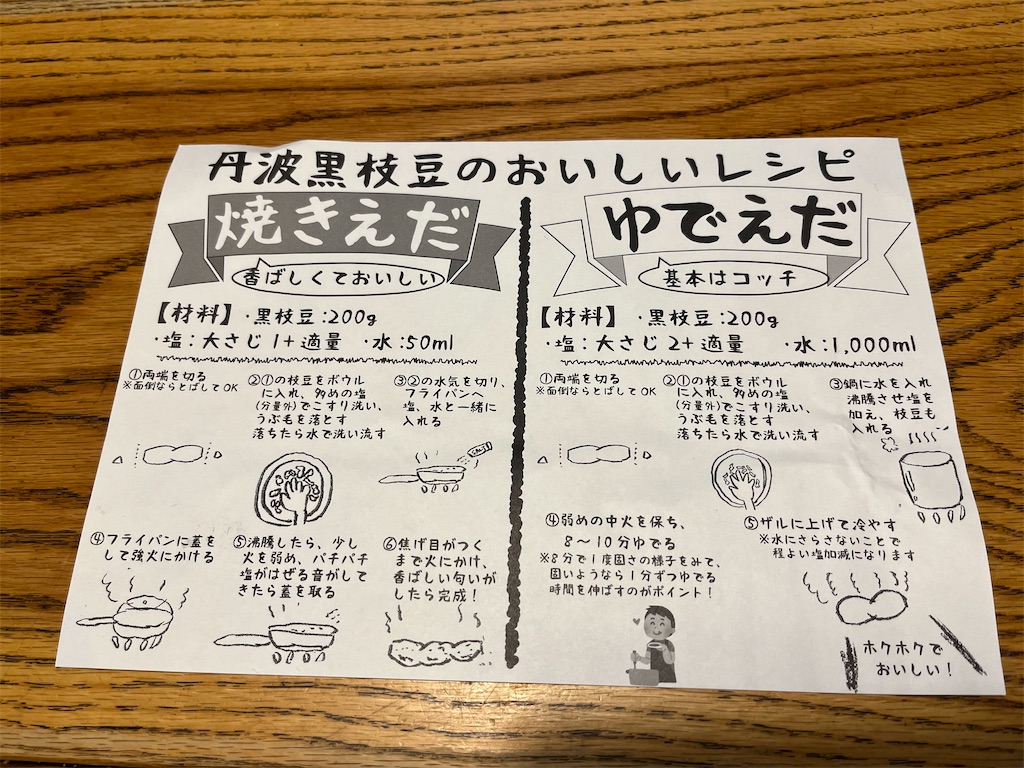 丹波黒枝豆のおいしいレシピ
焼きえだ
香ばしくておいしい
【材料】・黒枝豆:200g
・塩:大さじ1+適量 ・水:50ml
①両端を切る
※面倒ならとばしてOK
②①の枝豆をボウル
に入れ、多めの塩
(分量外)でこすり洗い、
うぶ毛を落とす
落ちたら水で洗い流す
③②の水気を切り、
フライパンへ
塩、水と一緒に
入れる
④フライパンに蓋を
して強火にかける
⑤沸騰したら、少し
火を弱め、パチパチ
塩がはぜる音がして
きたら蓋を取る
⑥焦げ目がつく
まで火にかけ、
香ばしい匂いが
したら完成!
ゆでえだ
基本はコッチ
【材料】・黒枝豆:200g
・塩:大さじ2+適量 ・水:1,000ml
①両端を切る
※面倒ならとばしてOK
②①の枝豆をボウル
に入れ、多めの塩
(分量外)でこすり洗い、
うぶ毛を落とす
落ちたら水で洗い流す
③鍋に水を入れ
沸騰させ塩を
加え、枝豆も
入れる
④弱めの中火を保ち、
8〜10分ゆでる
※8分で1度固さの様子をみて、
固いようなら1分ずつゆでる
時間を伸ばすのがポイント!
⑤ザルに上げて冷やす
※水にさらさないことで
程よい塩加減になります
ホクホクで
おいしい!